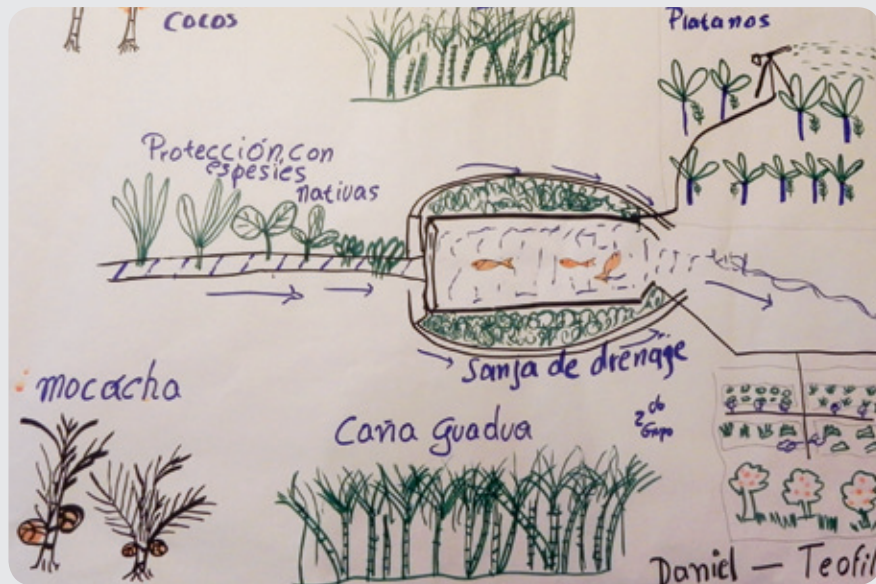 Cocos
Platanos
Protección con
espesies
nativas
sanja de drenage
mocacha
Caña Guadua
2do
Grupo
Daniel — Teofil